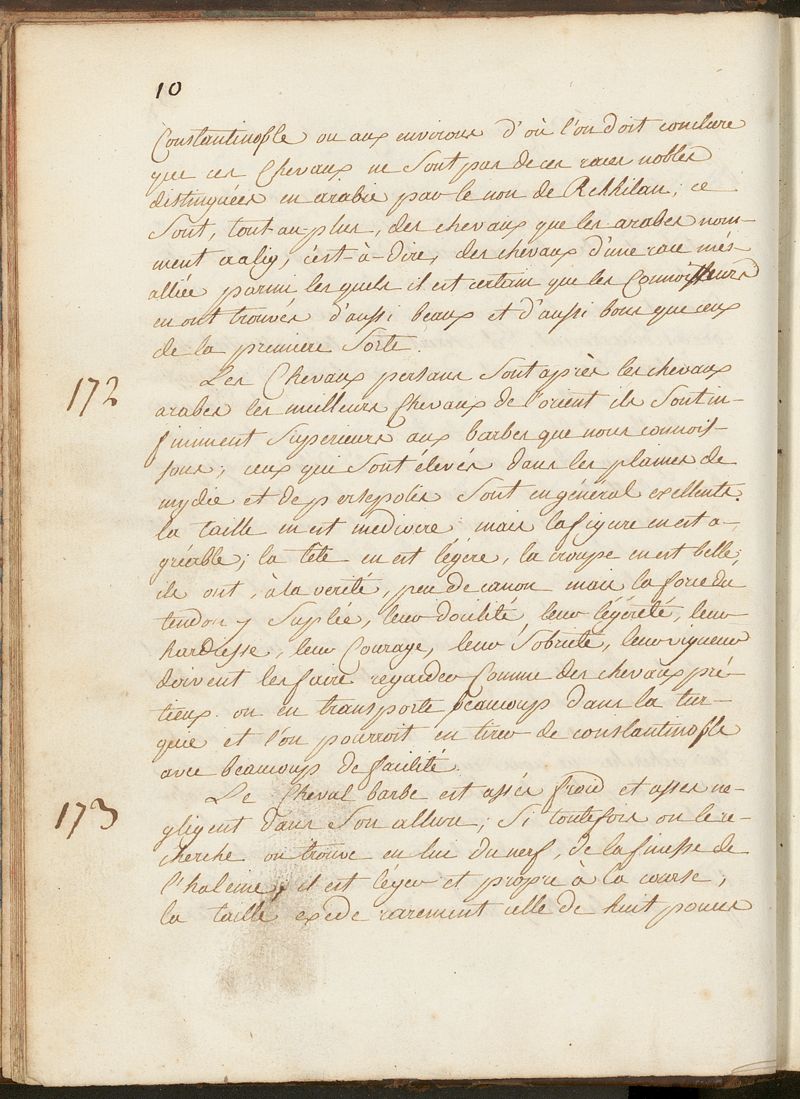 10
Constantinople ou aux environs d'où l'on doit conclure
que ces Chevaux ne Sont pas de ces races nobles
distinguées en arabie par le non de Rekhilan; ce
Sont, tout-au-plus, des chevaux que les arabes nom-
ment aalig, c'est-à-Dire, des chevaux d'une race més
alliée parmi les quels il est certain que les Connoisseurs
en ont trouvés d'aussi beaux et d'aussi bons que ceux
de la premiere Sorte.
172 Les Chevaux persans Sont après les chevaux
arabes les meilleurs Chevaux de l'orient ils Sont in-
finiment Superieurs aux barbes que nous connois-
sons; ceux qui Sont élevés dans les plaines de
mydie et de persepolis Sont en général exellents.
la taille en est mediocre mais la figure en est a-
gréable; la tête en est légère, la croupe en est belle;
ils ont, à la verité, peu de canon mais la force du
tendon y Suplée, leur docilité, leur légéreté, leur
hardiesse, leur Courage, leur Sobrieté, leur vigueur
doivent les faire regarder Comme des chevaux pré-
tieux. on en transporte beaucoup dans la tur-
quie et l'on pourroit en tirer de constantinople
avec beaucoup de facilité.
173 Le Cheval barbe est assés froid et asses ne-
gligent dans Son allure; Si toutefois on le re-
cherche on trouve en lui du nerf, de la finesse de
l'haleine, il est léger et propre à la course,
la taille exede rarement celle de huit pouces